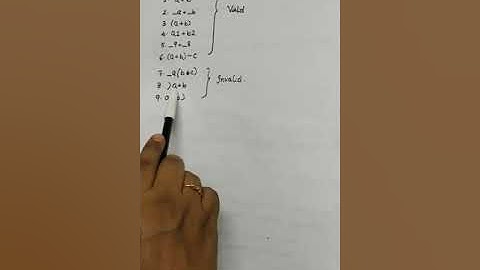 2. _a+_b
3 (a+b)
4. a1+b2
5. _9+_8
6. (a+b)-c
Valid
7. _a(b+c)
8. )a+b
9.
Invalid.